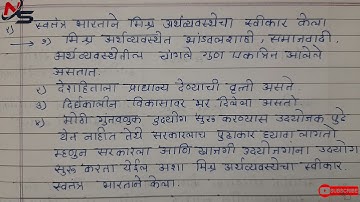 NS
१) स्वतंत्र भारताने मिश्र अर्थव्यवस्थेचा स्वीकार केला
→ १) मिश्र अर्थव्यवस्थेत भांडवलशाही, समाजवादी
अर्थव्यवस्थेतील चांगले गुण एकत्रित आलेले
असतात.
२) देशहिताला प्राधान्य देण्याची वृत्ती असते.
३) दिर्घकालीन विकासावर भर दिलेला असतो.
४) मोठी गुंतवणूक उद्योग सुरू करण्यास उद्योजक पुढे
येत नाहीत तेथे सरकारलाच पुढाकार घ्यावा लागतो
म्हणून सरकारला आणि खाजगी उद्योजगांना उद्योग
सुरू करता येईल अशा मिश्र अर्थव्यवस्थेचा स्वीकार
स्वतंत्र भारताने केला.
SUBSCRIBE